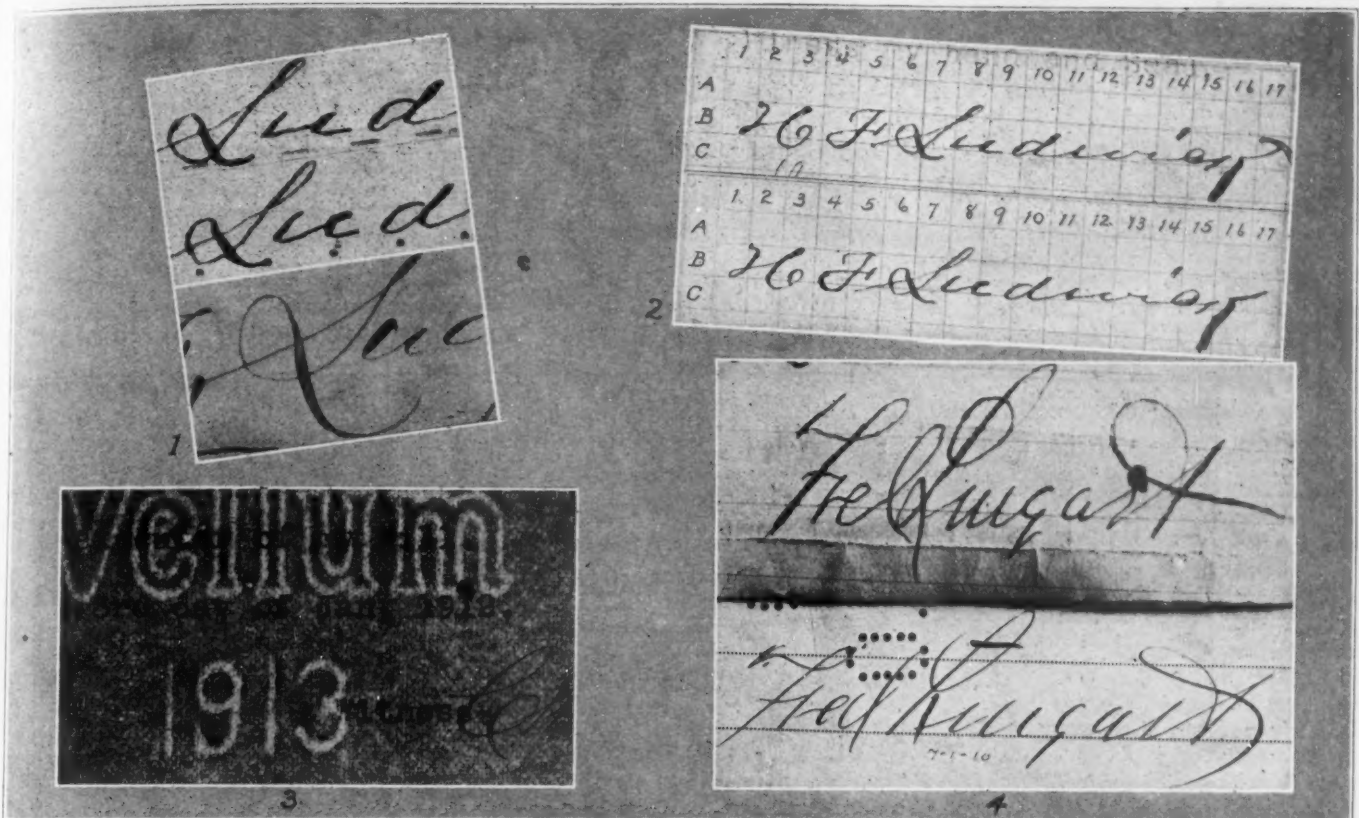 Lud
Lud.
Luc
1
1 2 3 4 5 6 7 8 9 10 11 12 13 14 15 16 17
A
B H F Ludwig
C
1 2 3 4 5 6 7 8 9 10 11 12 13 14 15 16 17
A
B H F Ludwig
C
2
vellum
1913
3
Fred Lingart
Fred Lingart
7-1-10
4